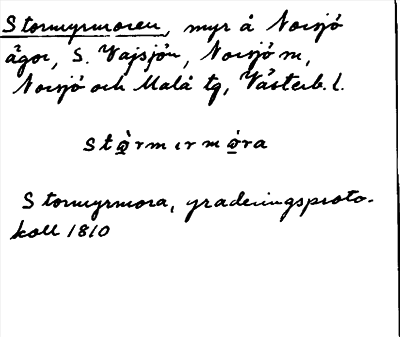 Stormyrmoren, myr å Norsjö
ägor, S. Vajsjön, Norsjö sn,
Norsjö och Malå tg, Västerb. l.
Stọ̀rmırmọ́ra
Stormyrmora, graderingsproto-
koll 1810